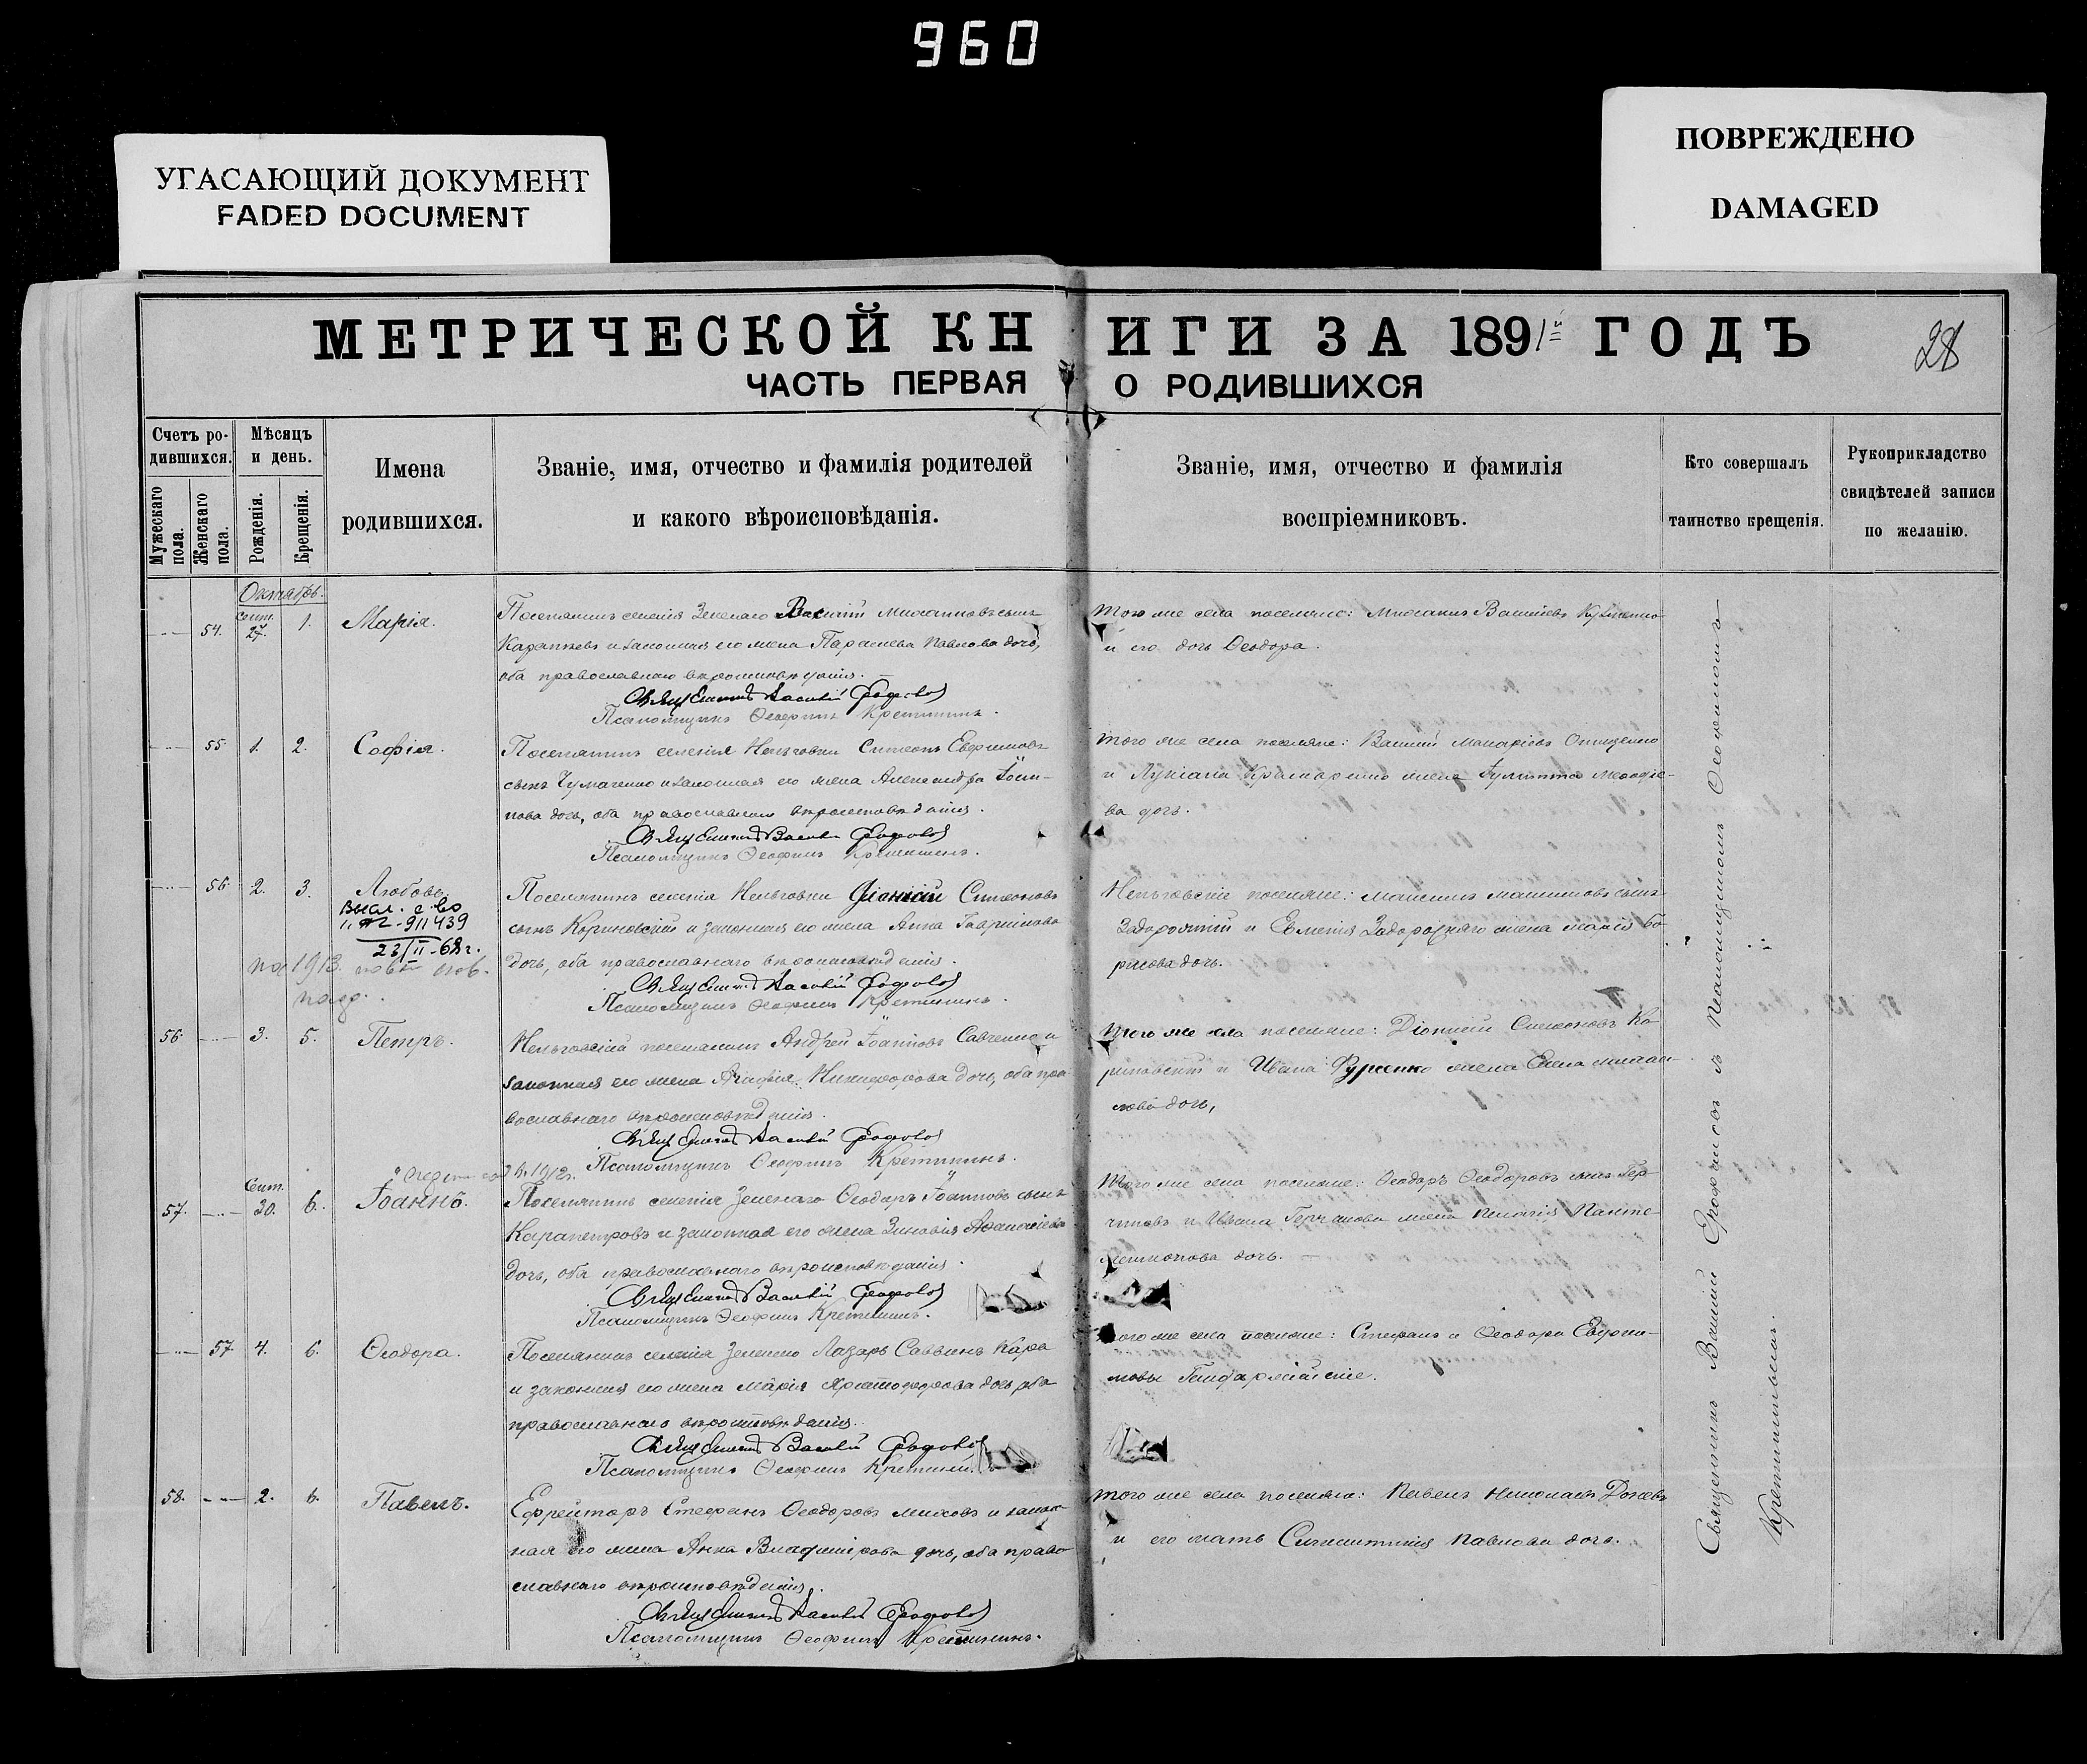 960
УГАСАЮЩИЙ ДОКУМЕНТ
FADED DOCUMENT
ПОВРЕЖДЕНО
DAMAGED
МЕТРИЧЕСКОЙ КНИГИ ЗА 1891й ГОДЪ
28
ЧАСТЬ ПЕРВАЯ О РОДИВШИХСЯ
Счетъ ро-
дившихся.
Мужескаго
пола.
Женскаго
пола.
Мѣсяцъ
и день.
Рожденія.
Крещенія.
Имена
родившихся.
Званіе, имя, отчество и фамилія родителей
и какого вѣроисповѣданія.
Званіе, имя, отчество и фамилія
воспріемниковъ.
Кто совершалъ
таинство крещенія.
Рукоприкладство
свидѣтелей записи
по желанію.
Октябрь.
54.
Сент.
27.
1.
Марія.
Поселянинъ селенія Зеленаго Василій Михаиловъ сынъ
и законная его жена Параскева Павлова дочь,
оба православнаго вѣроисповѣданія.
Священникъ Василій
Псаломщикъ Ѳеофилъ Кретининъ.
Того же села поселяне: Михаилъ Васильевъ
и его дочь Ѳеодора.
55.
1.
2.
Софія.
Поселянинъ селенія Нельговки Симеонъ Евфимовъ
сынъ Чумаченко и законная его жена Александра Іоан-
нова дочь, оба православнаго вѣроисповѣданія.
Священникъ Василій
Псаломщикъ Ѳеофилъ Кретининъ.
Того же села поселяне: Василій Макаріевъ Онищенко
и Лукіана Крамаренко жена Іулитта
ва дочь.
56.
2.
3.
Любовь.
Выс. с-во
911439
23/II-68г.
на 1913.
Поселянинъ селенія Нельговки Діонисій Симеоновъ
сынъ Кориновскій и законная его жена Анна Гавріилова
дочь, оба православнаго вѣроисповѣданія.
Священникъ Василій
Псаломщикъ Ѳеофилъ Кретининъ.
Нельговскіе поселяне: Максимъ сынъ
Задорожній и Евменія Задорожняго жена Марія Бо-
рисова дочь.
56.
3.
5.
Петръ.
Нельговскій поселянинъ Андрей Іоанновъ Савченко и
законная его жена Агафія Никифорова дочь, оба пра-
вославнаго вѣроисповѣданія.
Священникъ Василій
Псаломщикъ Ѳеофилъ Кретининъ.
Того же села поселяне: Діонисій Симеоновъ Ко-
риновскій и Ивана Фурсенко жена Елена
дочь,
57.
Сент.
30.
6.
Іоаннъ.
Поселянинъ селенія Зеленаго Ѳеодоръ Іоанновъ сынъ
Карапетровъ и законная его жена Зиновія Аѳанасіева
дочь, оба православнаго вѣроисповѣданія.
Священникъ Василій
Псаломщикъ Ѳеофилъ Кретининъ.
Того же села поселяне: Ѳеодоръ Ѳеодоровъ сынъ Гер-
и Ивана жена Пелагія Панте-
леимонова дочь.
57.
4.
6.
Ѳеодора.
Поселянинъ селенія Зеленаго Лазарь Саввинъ Кара
и законная его жена Марія Христофорова дочь оба
православнаго вѣроисповѣданія.
Священникъ Василій
Псаломщикъ Ѳеофилъ Кретининъ.
Того же села поселяне: Стефанъ и Ѳеодора Евфи-
мовы
58.
2.
6.
Павелъ.
Ефрейторъ Стефанъ Ѳеодоровъ и закон-
ная его жена Анна Владимірова дочь, оба право-
славнаго вѣроисповѣданія.
Священникъ Василій
Псаломщикъ Ѳеофилъ Кретининъ.
Того же села поселяне: Павелъ Николаевъ
и его мать Павлова дочь.
Священникъ Василій съ Псаломщикомъ Ѳеофиломъ
Кретининымъ.